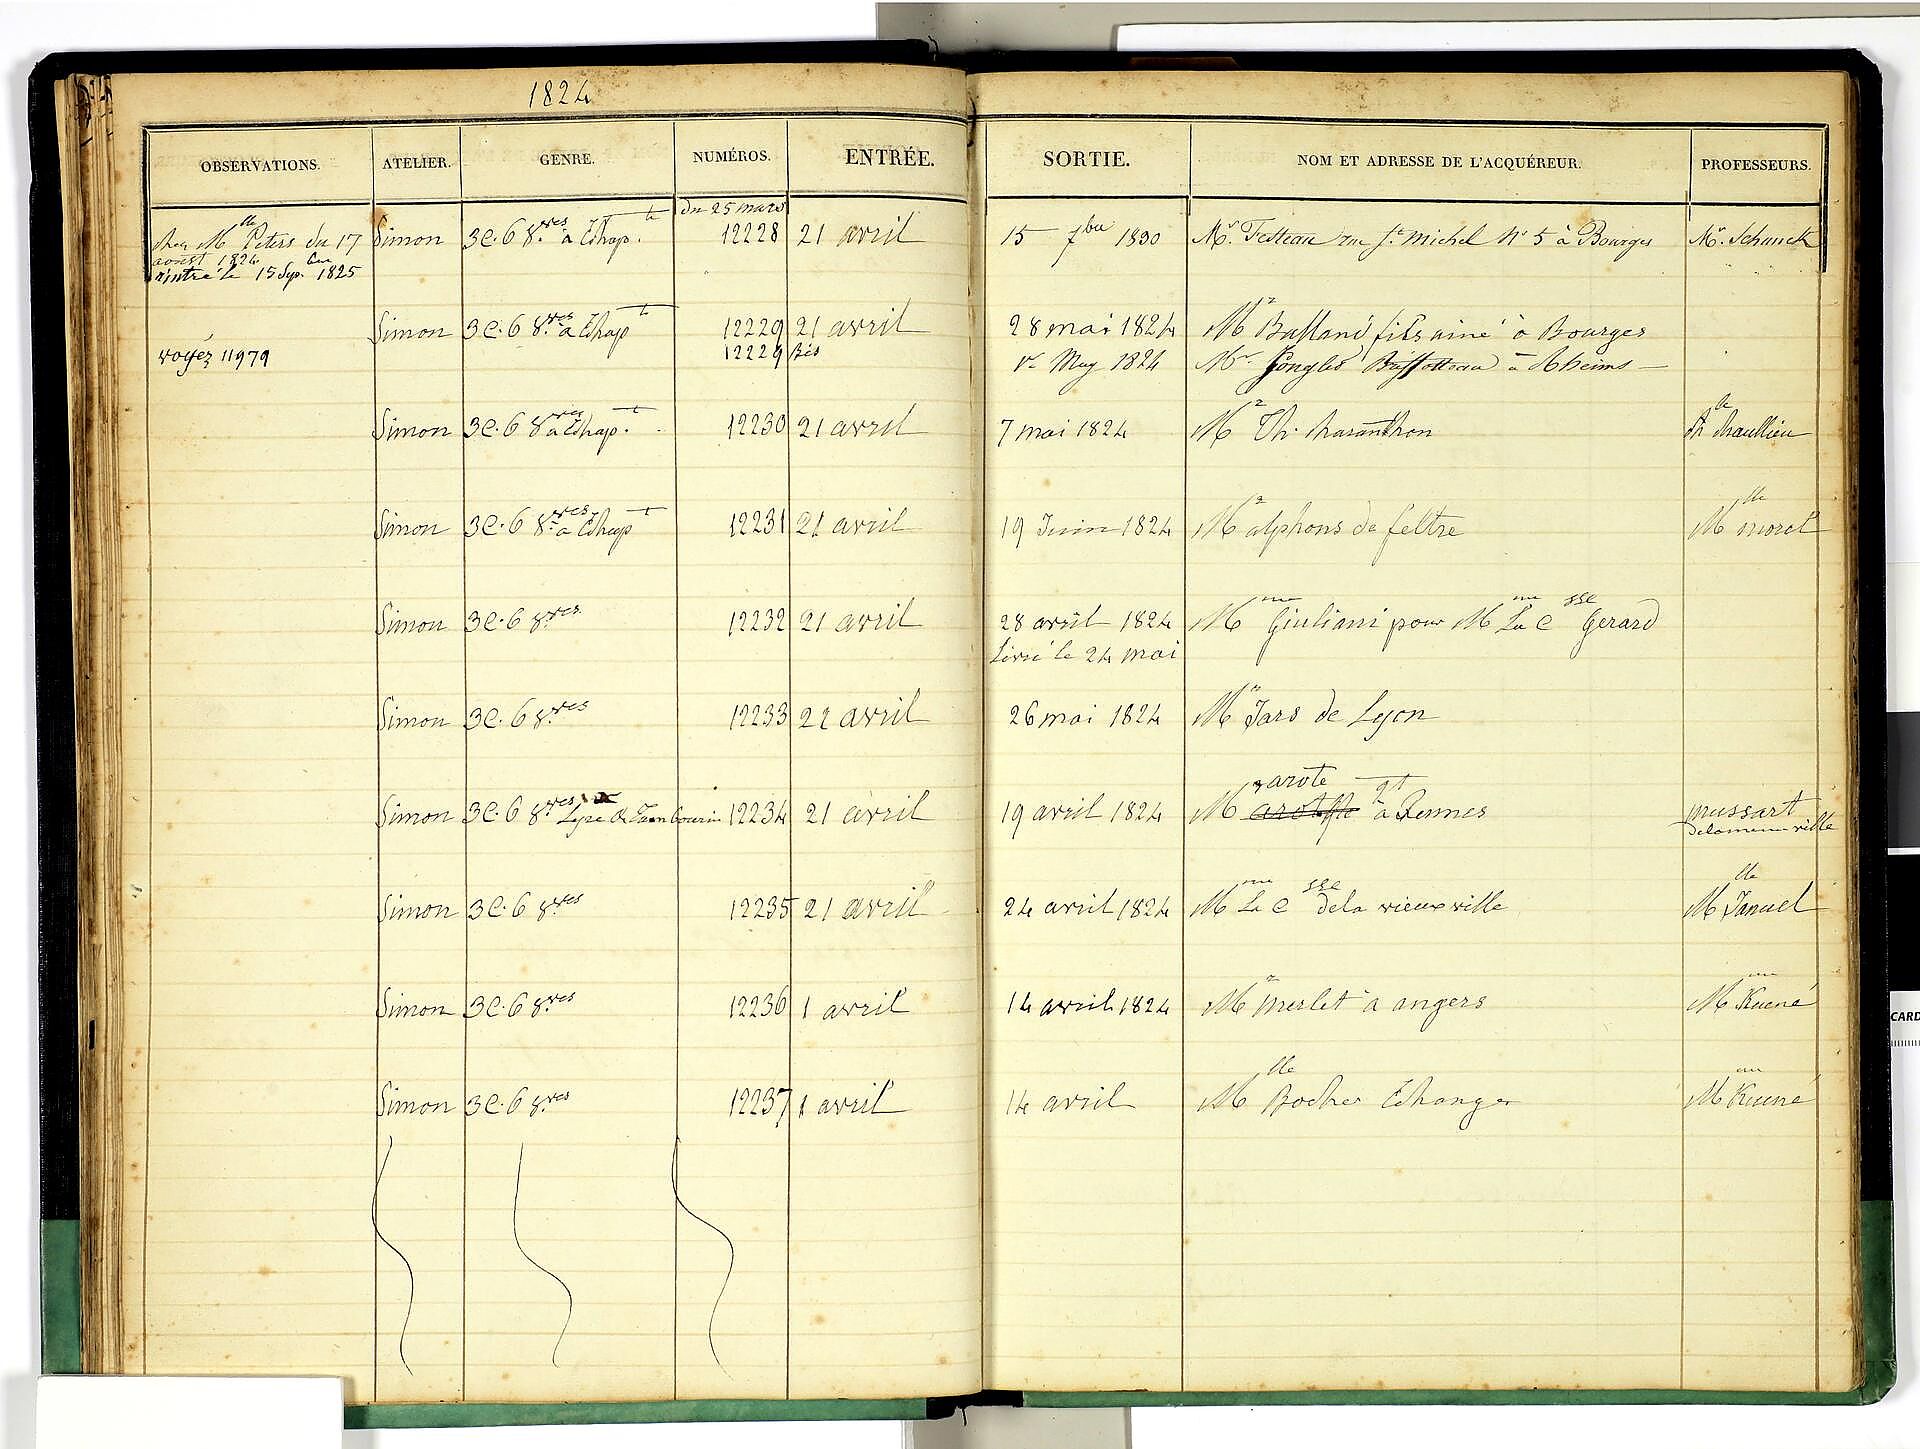 1824
OBSERVATIONS. ATELIER. GENRE. NUMÉROS. ENTRÉE. SORTIE. NOM ET ADRESSE DE L'ACQUÉREUR. PROFESSEURS.
du 25 mars
chez Mlle Peters du 17 Simon 3C. 6 8.ves à Echap.t 12228 21 avril 15 7bre 1830 Mr. Festeau rue St. Michel N° 5 à Bourges Mr. Schunck
aoust 1824
rentré le 15 Sep.bre 1825
Simon 3C. 6 8.ves à Echapt 12229 21 avril 28 mai 1824 Mr Balland fils ainé à Bourges
voyez 11979 12229 Bis 1er May 1824 Mr à Rheims
Simon 3C. 6 8ves à Echap.t 12230 21 avril 7 mai 1824 Mr Th.
Simon 3C. 6 8.ves à Echapt 12231 21 avril 19 Juin 1824 Mr alphons de feltre Mlle morel
Simon 3C. 6 8.ves 12232 21 avril 28 avril 1824 Mme Giuliani pour Mme La Csse Gerard
Livré le 24 mai
Simon 3C. 6 8.ves 12233 22 avril 26 mai 1824 Mr Jars de Lyon
arote
Simon 3C. 6 8.ves Lyre & Tambourin 12234 21 avril 19 avril 1824 Mr à Rennes mussart
Simon 3C. 6 8ves 12235 21 avril 24 avril 1824 Mme La Csse dela vieuxville Mlle
Simon 3C. 6 8.ves 12236 1 avril 14 avril 1824 Mr merlet à angers Mme Kuené
Simon 3C. 6 8.ves 12237 1 avril 14 avril Mlle Bocher Echange Mme Kuené
CARD